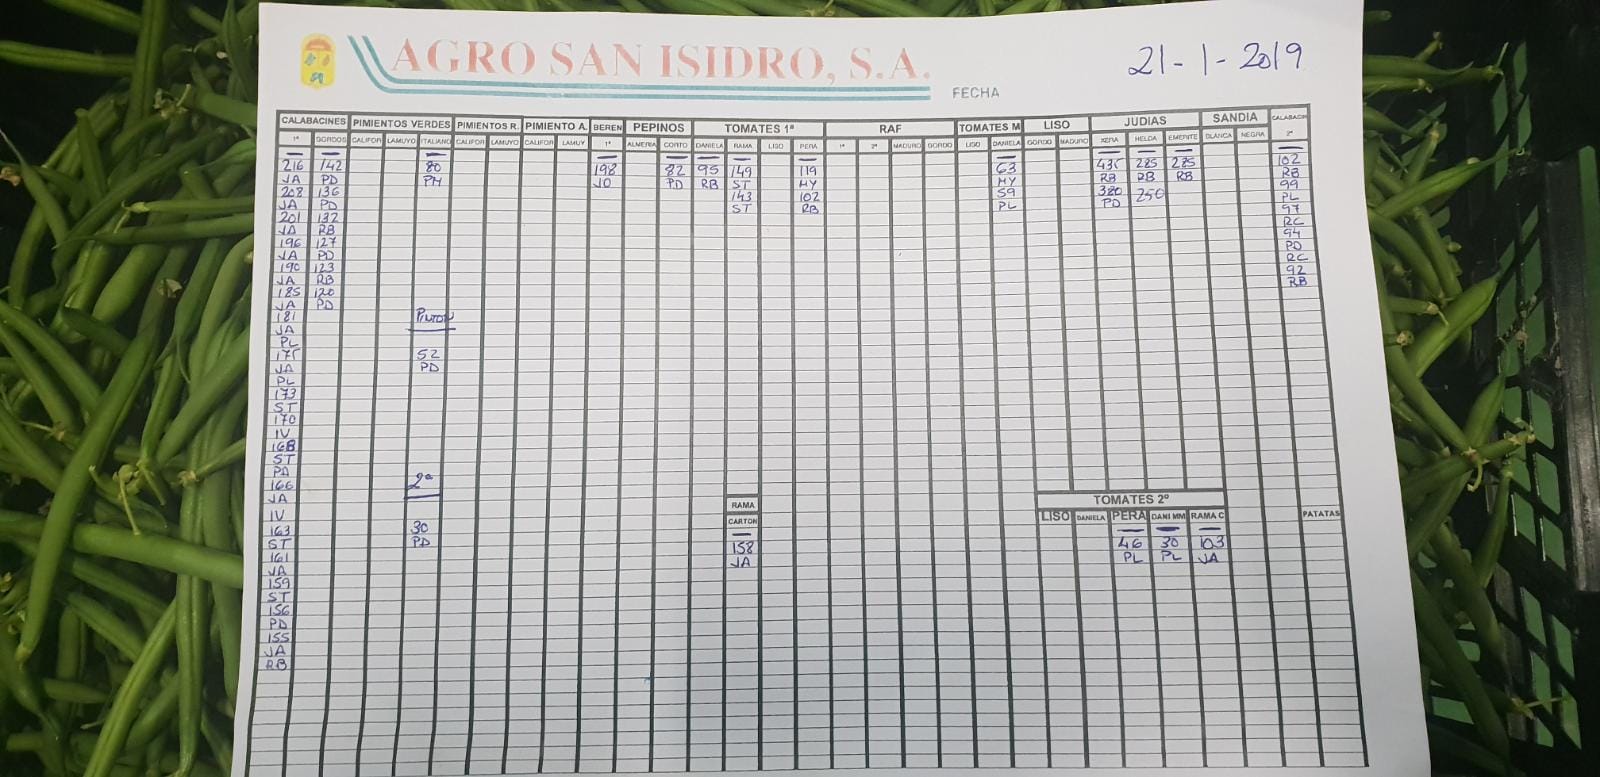 AGRO SAN ISIDRO, S.A.
FECHA
21-1-2019
CALABACINES PIMIENTOS VERDES PIMIENTOS R. PIMIENTO A. BEREN PEPINOS TOMATES 1ª RAF TOMATES M LISO JUDIAS SANDIA CALABACIN
1ª GORDOS CALIFOR LAMUYO ITALIANO CALIFOR LAMUYO CALIFOR LAMUY 1ª ALMERIA CORTO DANIELA RAMA LISO PERA 1ª 2ª MADURO GORDO LISO DANIELA GORDO MADURO XERA HELDA EMERITE BLANCA NEGRA 2ª
216 142 80 198 82 95 149 119 63 435 285 285 102
JA PD PM JO PD RB ST MY MY RB RB RB RB
208 136 143 102 59 380 250 99
JA PD ST RB PL PD PL
201 132 97
JA RB RC
196 127 94
JA PD PD
190 123 RC
JA RB 92
185 120 RB
JA PD
181 PINTON
JA
PL
175 52
JA PD
PL
173
ST
170
IV
168
ST
PD
166 2ª
JA RAMA TOMATES 2º
IV CARTON LISO DANIELA PERA DANI MM RAMA C PATATAS
163 30
ST PD 158 46 30 103
161 JA PL PL JA
JA
159
ST
156
PD
155
JA
RB